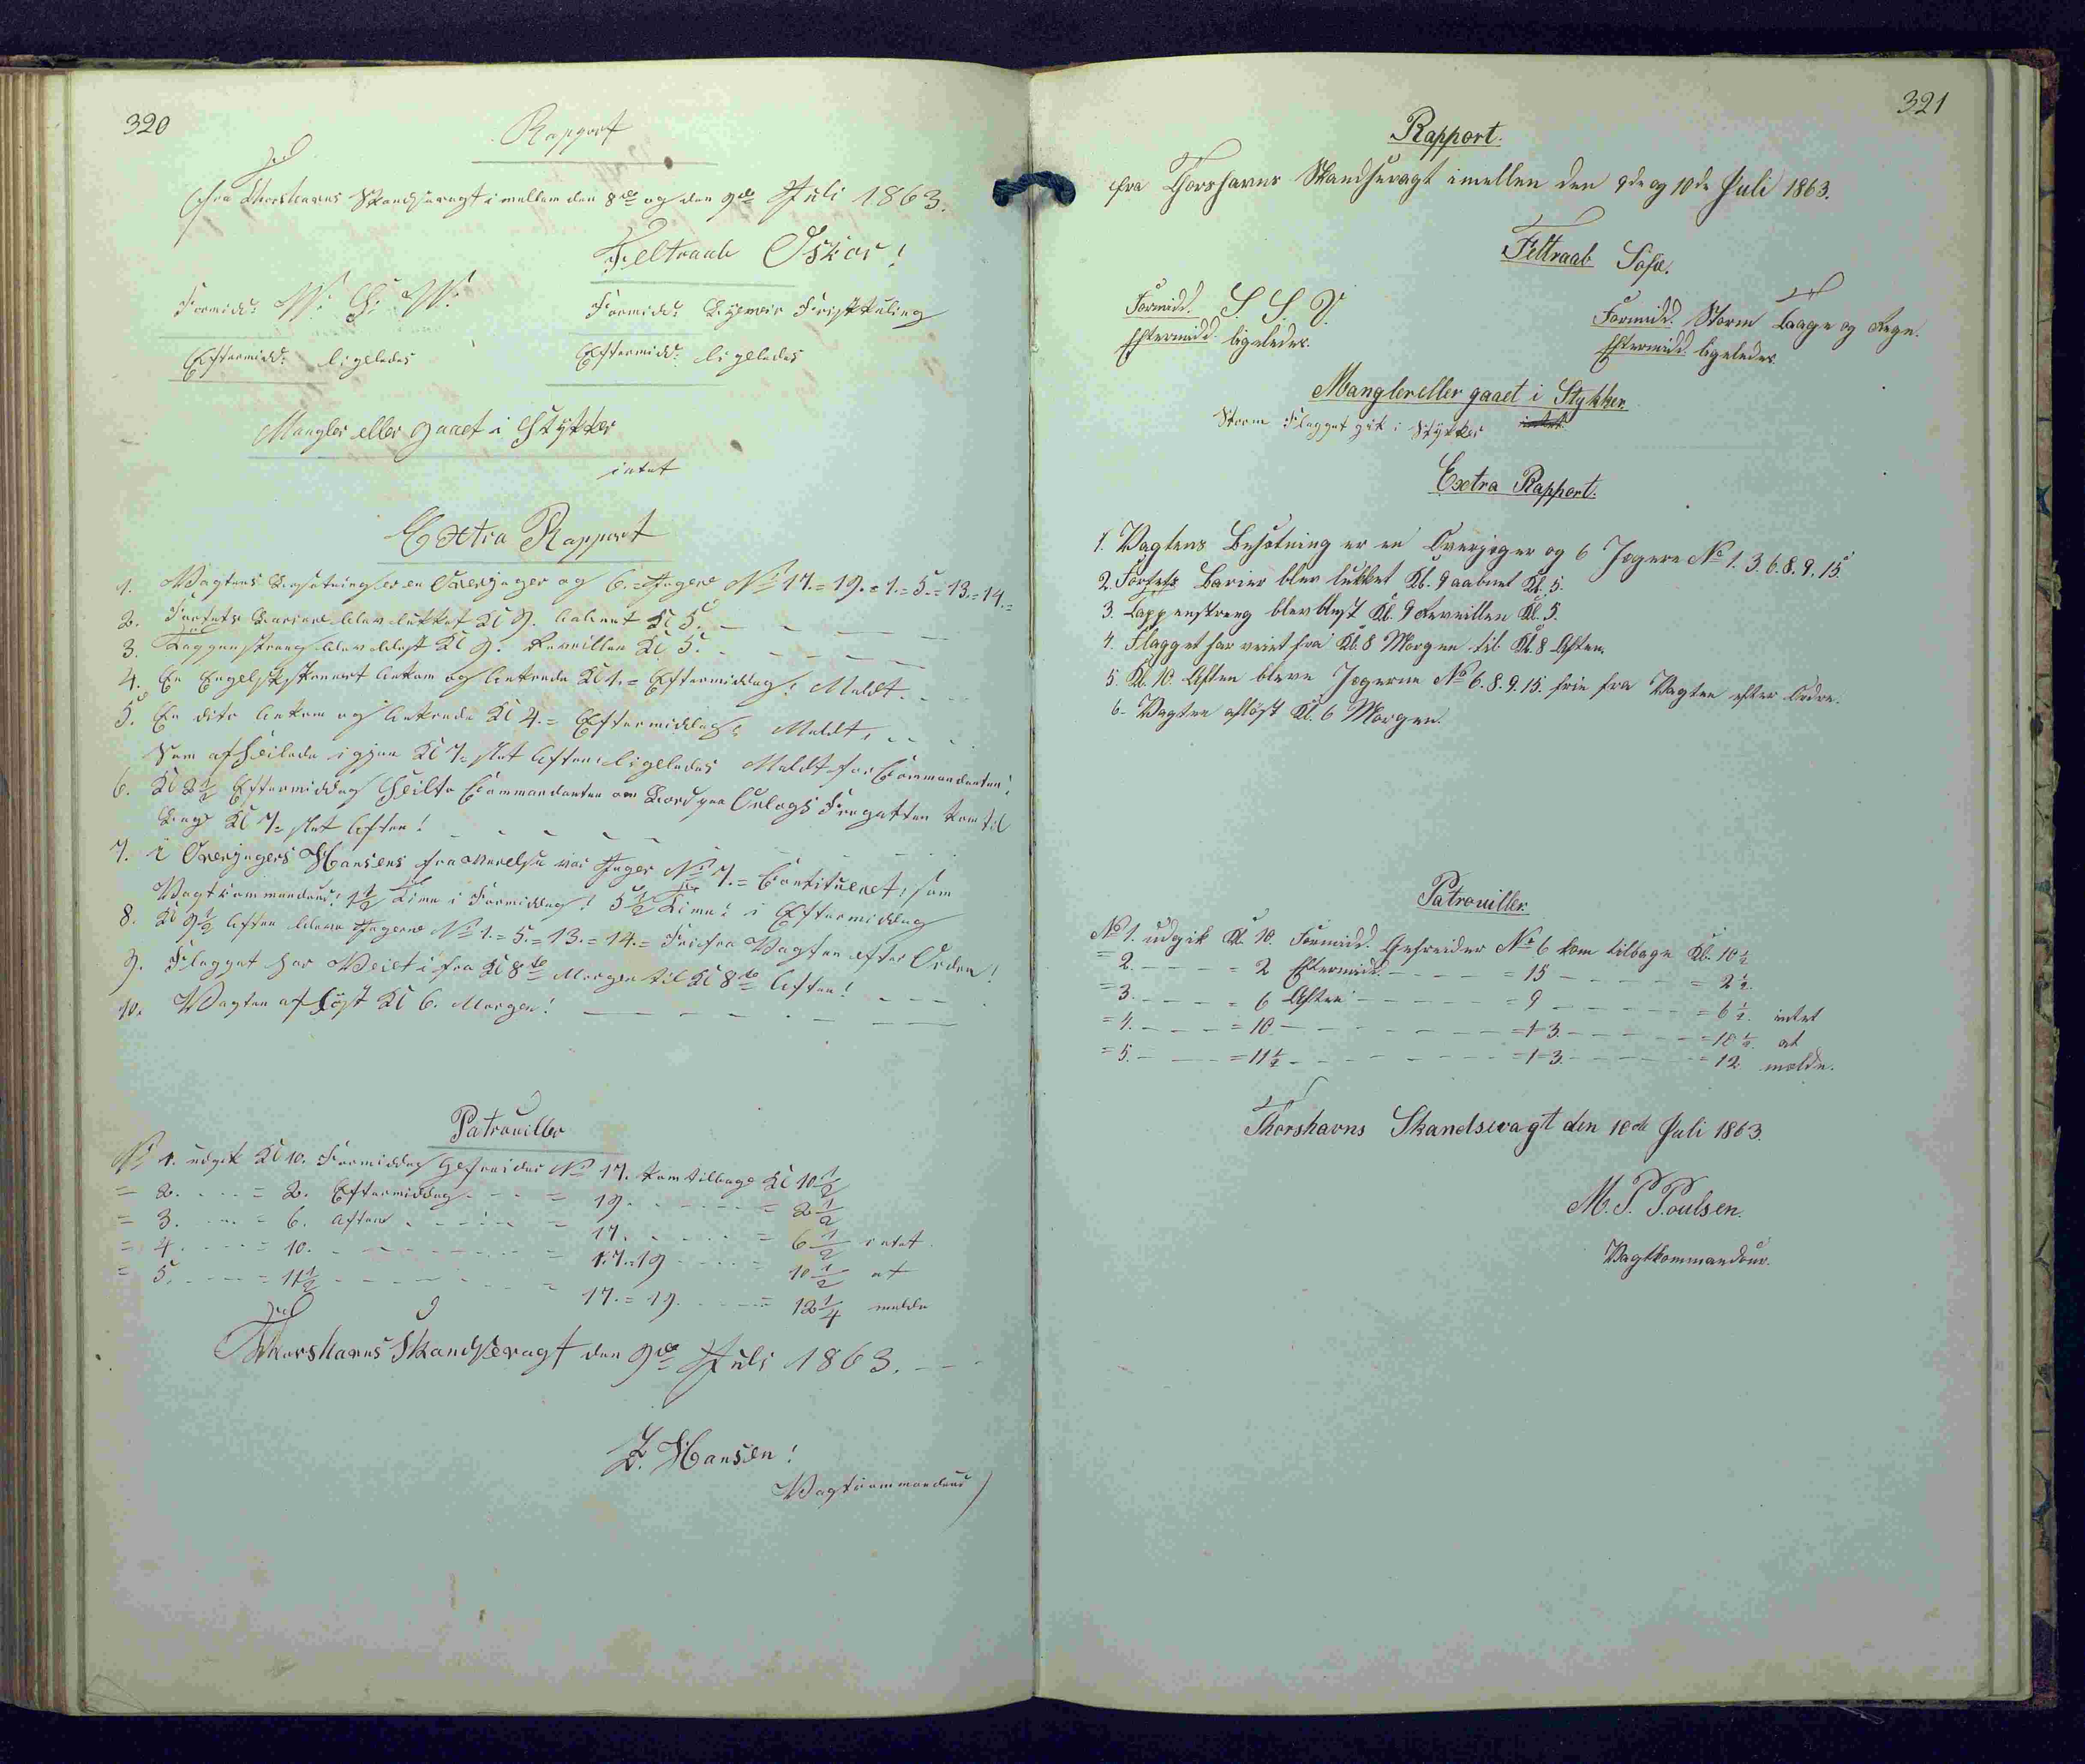 320
Rapport
fra Thorshavns Skandsevagt imellem den 8de og den 9de Juli 1863.
Feltraab Oskar!
Formidd: V. S. V.
Formidd: Bygeveir Frisk Kuling
Eftermidd: ligeledes
Eftermidd: ligeledes
Mangler eller gaaet i Stykker
intet
Extra Rapport
1. Vagtens Besætning er en Overjæger og 6. Jægere No 17. = 19. = 1. = 5. = 13. = 14. =
2. Fortets Bariere blev lukket Kl 9. aabnet Kl 5.
3. Tappenstreg blev blæst Kl 9. Reveillen Kl 5.
4. En Engelsk ankom og ankrede Kl 1. = Eftermiddag: Meldt.
5. En dito ankom og ankrede Kl 4. = Eftermiddag: Meldt,
Som afseilede igjen Kl 7. slet Aften ligeledes Meldt for Commandanten!
6. Kl 2½ Eftermiddag Seilte Commandanten om Bord paa Orlogs Fregatten kom til
Bage Kl 7. slet Aften!
7. I Overjægers Hansens fraværelse var Jæger No 7. = Constitueret, som
Vagtkommandeur 1½ Time i Formiddag! 5½ Time i Eftermiddag
8. Kl 9½ Aften bleve Jægerne No 1. = 5. = 13. = 14. = Fri fra Vagten efter Orden!
9. Flagget har Veiet i fra Kl 8te Morgen til Kl 8te Aften!
10. Vagten afløst Kl 6. Morgen!
Patrouiller
No 1. udgik Kl 10. Formiddag Gefreider No 17. kom tilbage Kl 10½
= 2. = 2. Eftermiddag = 19. = 2½
= 3. = 6. Aften = 17. = 6½ intet
= 4. = 10. = 17. 19 = 10½ at
= 5. = 11½ = 17. = 19. = 12¼ melde
Thorshavns Skandsevagt den 9de Juli 1863.
Z. Hansen!
Vagtkommandeur
321
Rapport.
fra Thorshavns Skandsevagt imellen den 9de og 10de Juli 1863.
Feltraab Sofie.
Formidd. S. S. V.
Formidd. Storm Taage og Regn.
Eftermidd. ligeledes.
Eftermidd. ligeledes.
Mangler eller gaaet i Stykker
Storm Flagget gik i Stykker intet
Extra Rapport.
1. Vagtens Besætning er en Overjæger og 6 Jægere No 1. 3. 6. 8. 9. 15.
2. Fortets Barier blev lukket Kl. 9 aabnet Kl. 5.
3. Tappenstreeg blev blæst Kl. 9 Reveillen Kl. 5.
4. Flagget har veiet fra Kl. 8 Morgen til Kl. 8 Aften.
5. Kl. 10 Aften bleve Jægerne No 6. 8. 9. 15. frie fra Vagten efter Ordre.
6. Vagten afløst Kl. 6 Morgen.
Patrouiller
No 1. udgik Kl. 10. Formidd. Gefreider No 6 kom tilbage Kl. 10½
= 2. = 2 Eftermidd. = 15 = 2½.
= 3. = 6 Aften = 9 = 6½. intet
= 4. = 10 = 1 = 3. = 10½. at
= 5. = 11½ = 1 = 3. = 12 melde.
Thorshavns Skandsevagt den 10de Juli 1863.
M. P. Poulsen.
Vagtkommandeur.